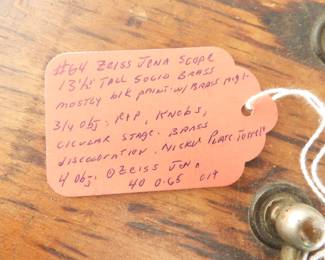 #64 ZEISS JENA SCOPE
13½" TALL SOLID BRASS
MOSTLY BLK PAINT. W/ BRASS
3/4 OBJ. R&P, KNOBS,
CIRCULAR STAGE. BRASS
DISCOLORATION. NICKEL PLATE TURRET
4 OBJ. ZEISS JENA
40 0.65